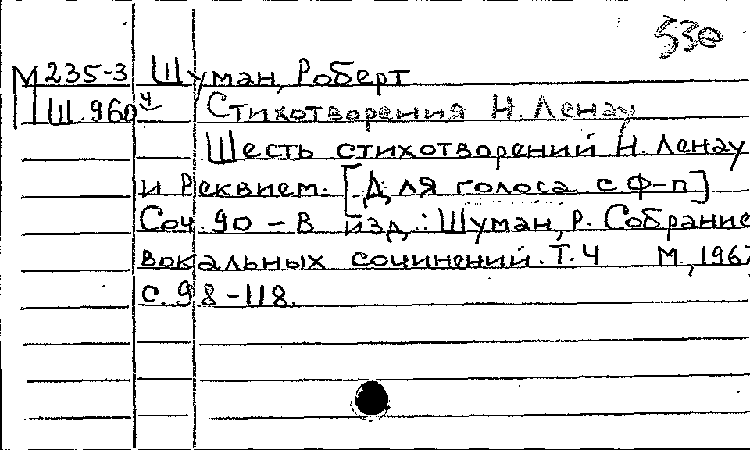 530
М235-3 Шуман, Роберт
Ш.960 ч Стихотворения Н. Ленау
Шесть стихотворений Н. Ленау
и Реквием. [Для голоса с ф-п]
Соч. 90 - В изд.: Шуман, Р. Собрание
вокальных сочинений. Т. 4 М, 1967,
с. 98-118.